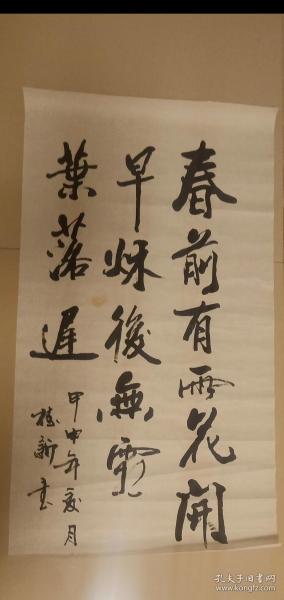 春前有雨花開
早秌後無霜
葉落遲
甲申年夏月
桂新書
孔夫子旧书网
www.kongfz.com